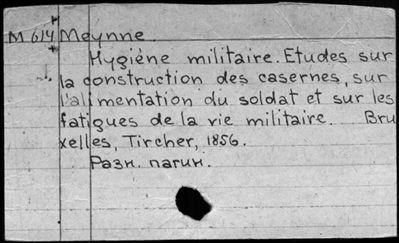 M 614 Meynne.
Hygiène militaire. Etudes sur
la construction des casernes, sur
l'alimentation du soldat et sur les
fatigues de la vie militaire. Bru
xelles, Tircher, 1856.
Разн. пагин.